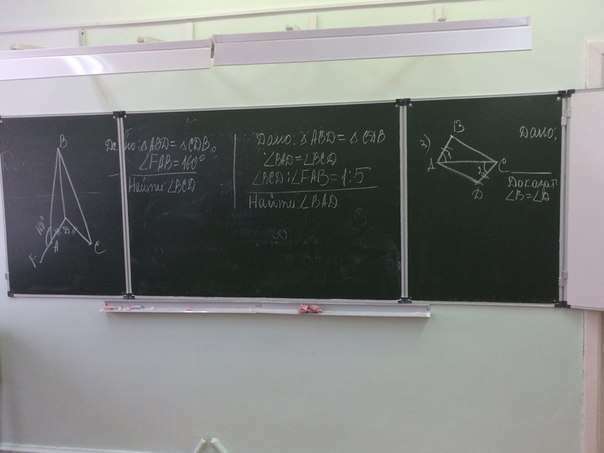 B
Дано: △ABD = △CDB,
∠FAB = 160°
Найти ∠BCD
A
D
C
F
Дано: △ABD = △CDB
∠BAD = ∠BCD
∠BCD : ∠FAB = 1:5
Найти ∠BAD
3)
B
A
C
D
Дано:
Доказат
∠B = ∠D